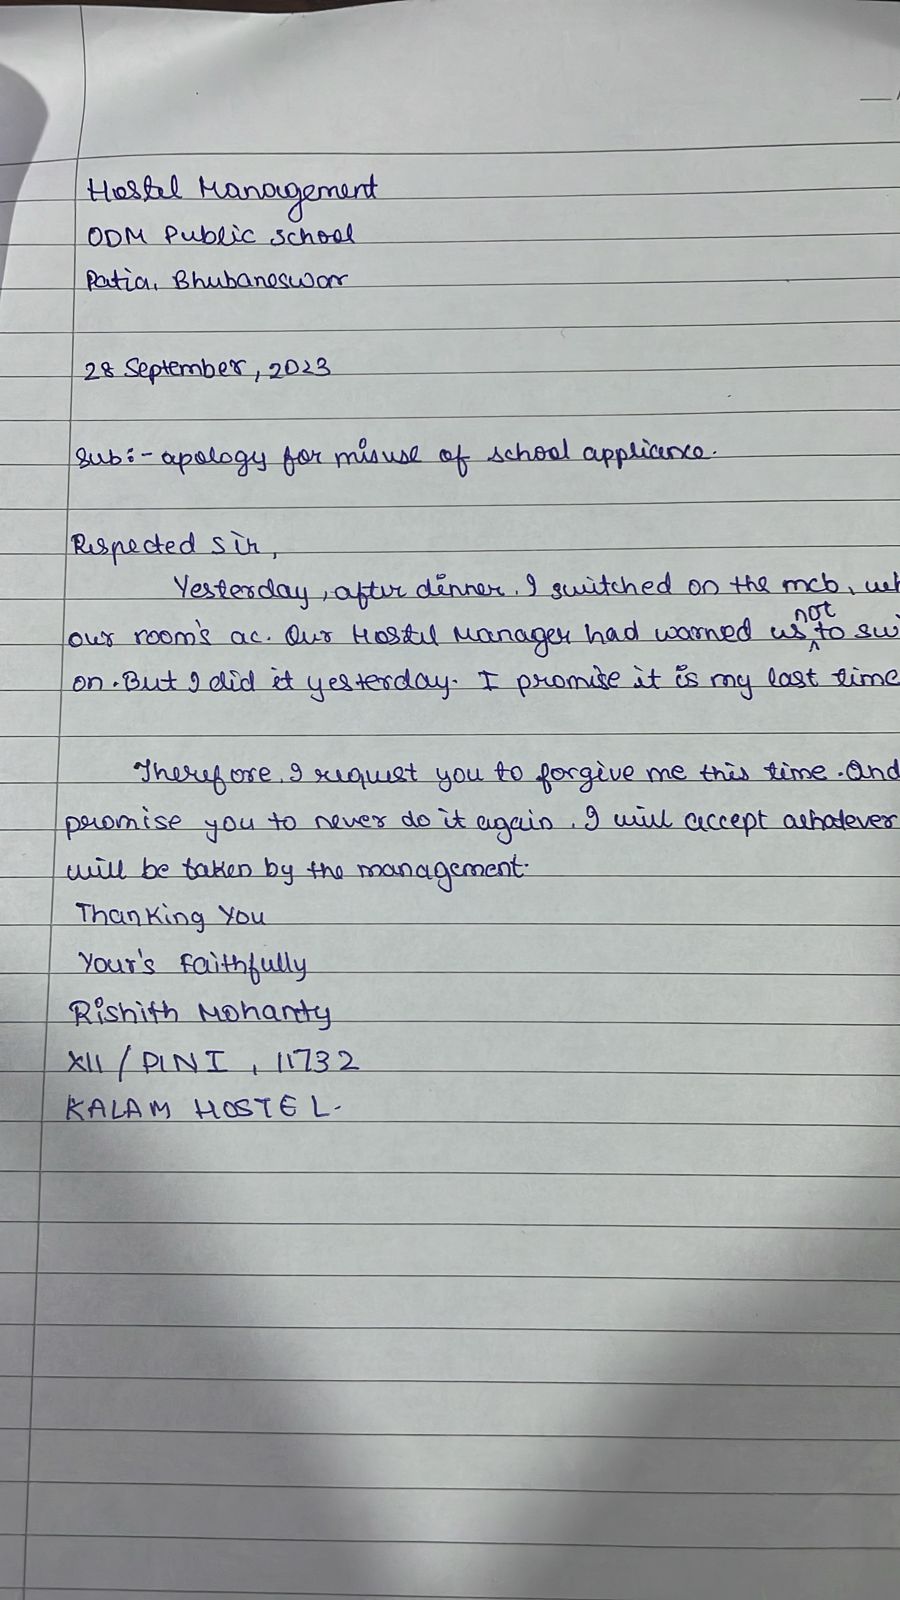 Hostel Management
ODM Public school
Patia, Bhubaneswar
28 September, 2023
Sub:- apology for misuse of school appliance.
Respected Sir,
Yesterday, after dinner. I switched on the mcb,
our room's ac. Our Hostel Manager had warned us not to
on. But I did it yesterday. I promise it is my last time
Therefore, I request you to forgive me this time. And
promise you to never do it again. I will accept whatever
will be taken by the management.
Thanking You
Your's Faithfully
Rishith Mohanty
XII / PLN I, 11732
KALAM HOSTEL.